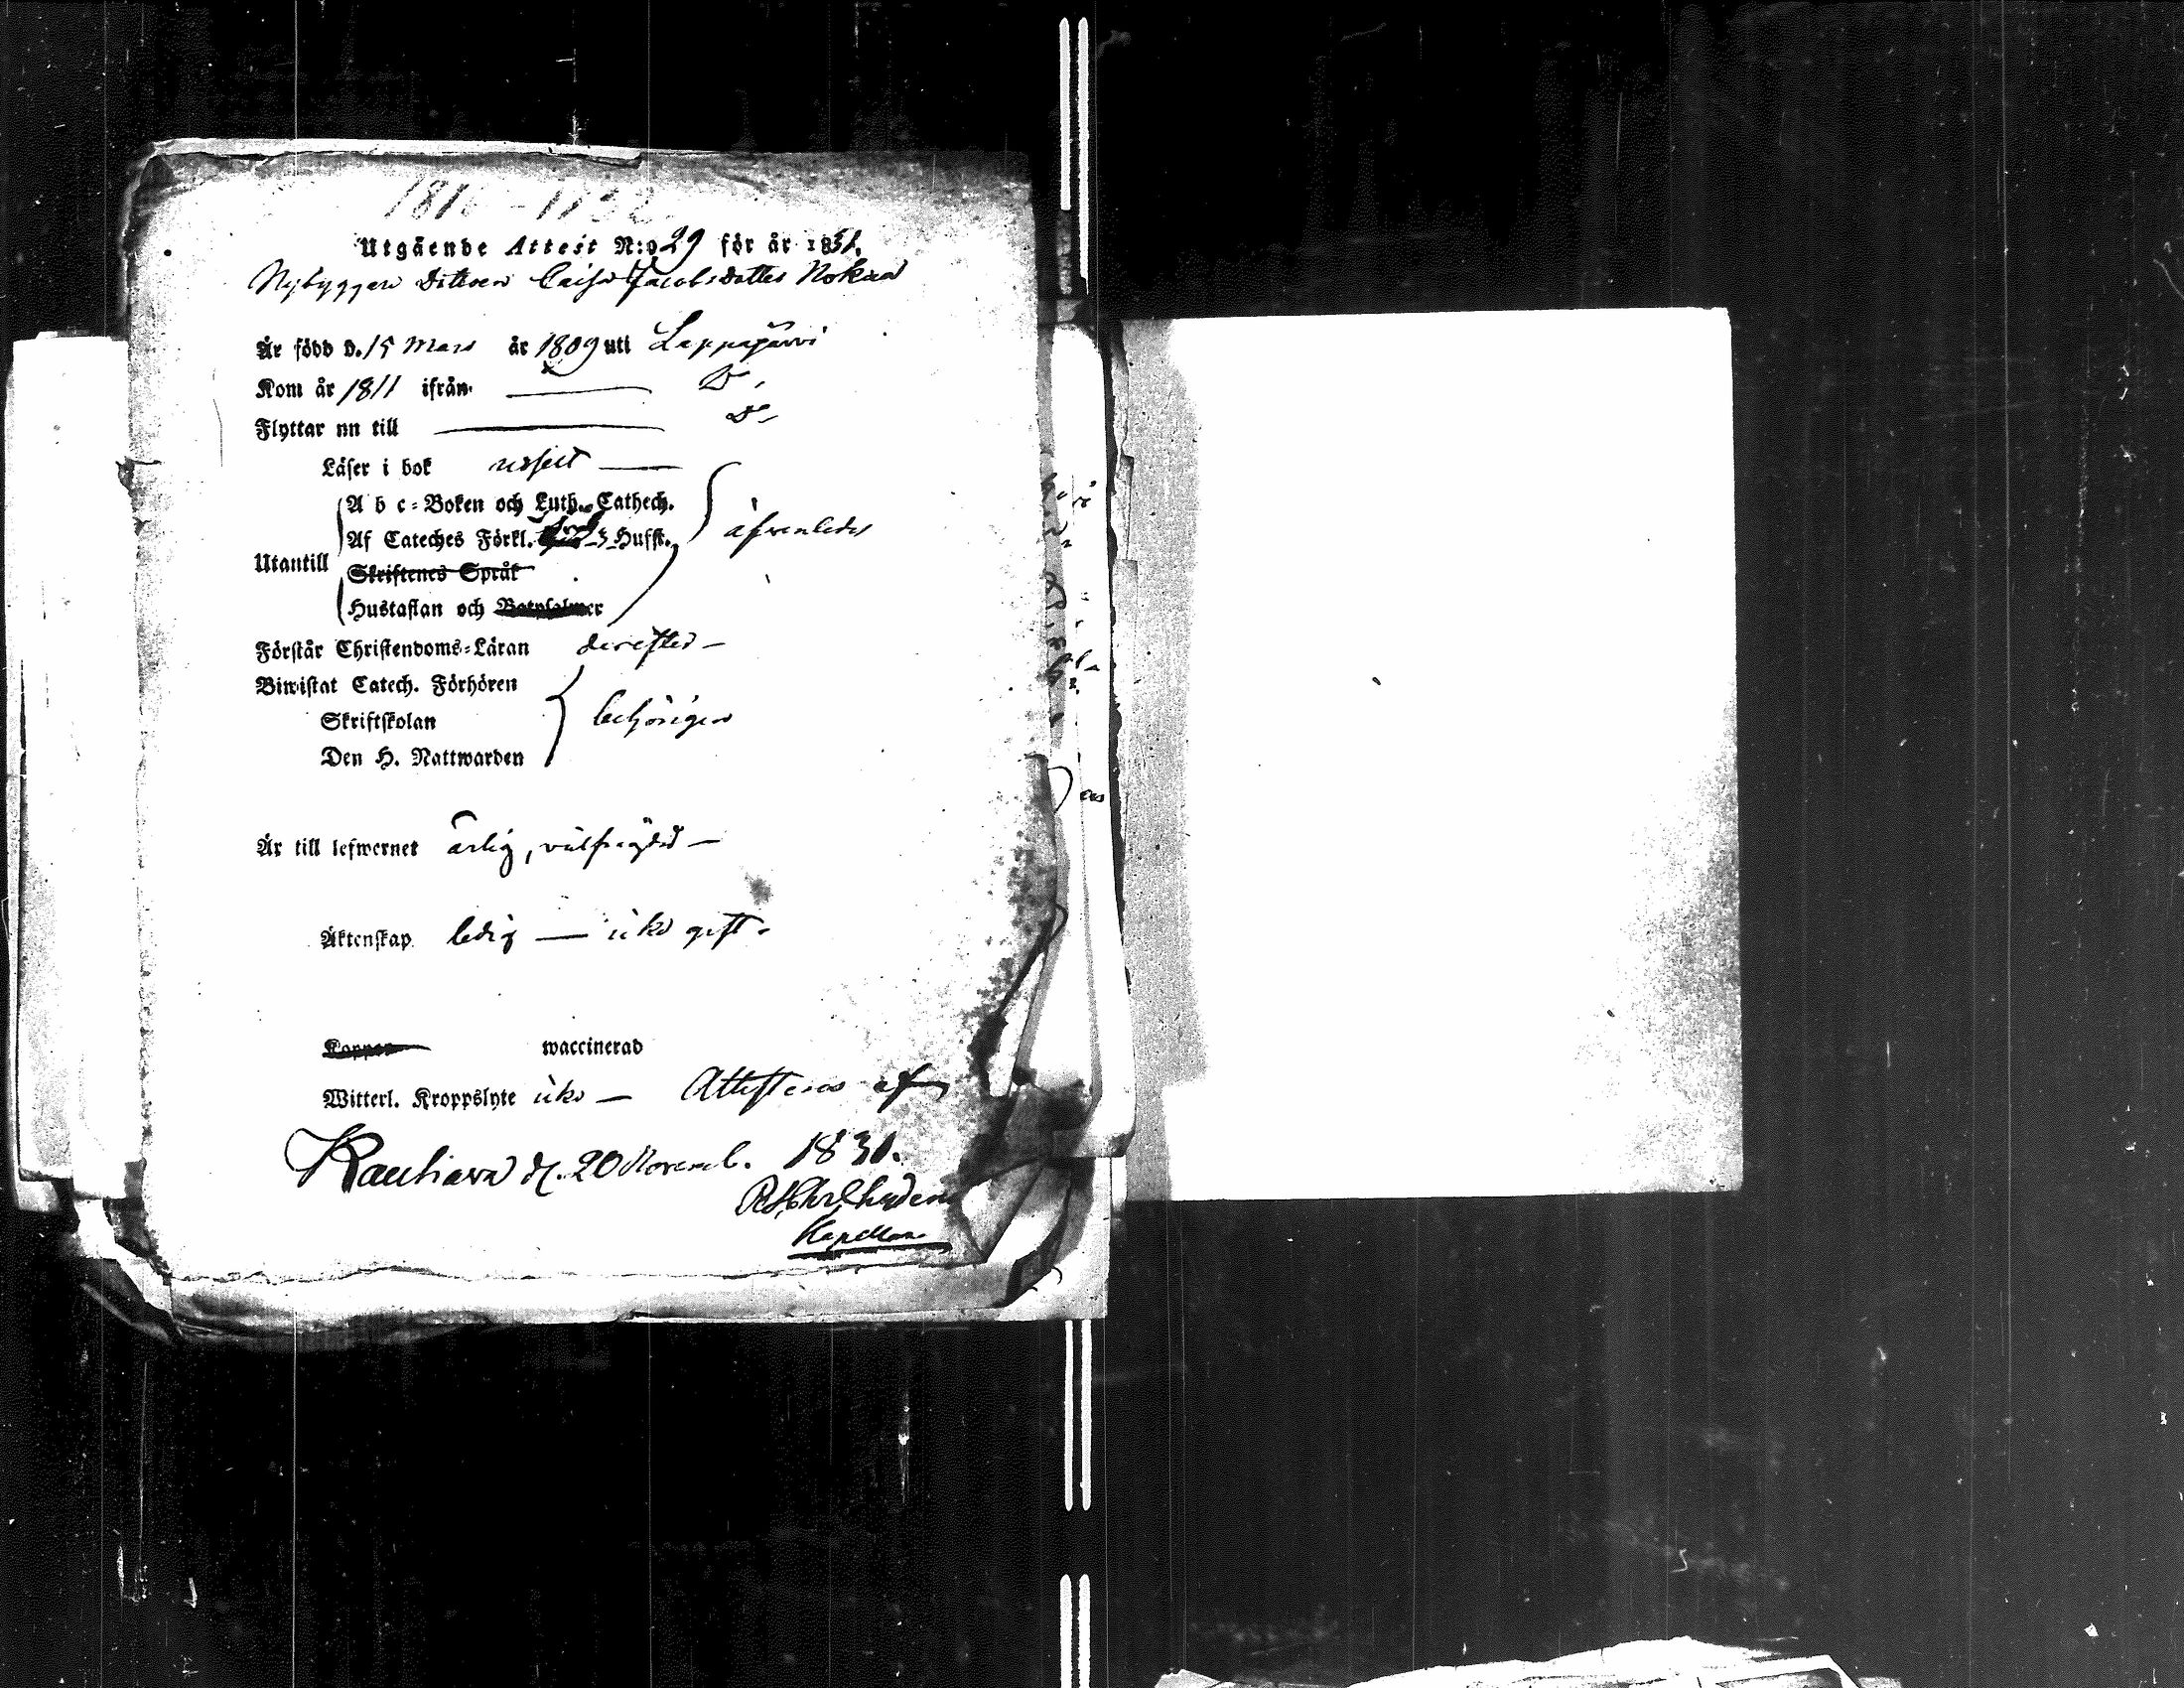 Utgående Attest N:o 29 för år 1831.
Nybyggare Dottren Caisa Jacobsdotter
Är född d. 15 Mars år 1809 uti Lappajärvi
Kom år 1811 ifrån — Do,
Flyttar nu till — Do,
Läser i bok —
A b c-Boken och Luth. Cathech.
Af Cateches Förkl. 3 Hufst. äfvenledes
Utantill
Skriftenes Språk
Hustaflan och Botpsalmer
Förstår Christendoms-Läran derefter —
Biwistat Catech. Förhören
Skriftskolan behörigen
Den H. Nattwarden
Är till lefwernet ärlig, välfrägdad —
Äktenskap ledig — icke gift.
Koppor waccinerad
Witterl. Kroppslyte icke — Attesteras af
Kauhava d. 20 Novemb. 1831.
Kapellan